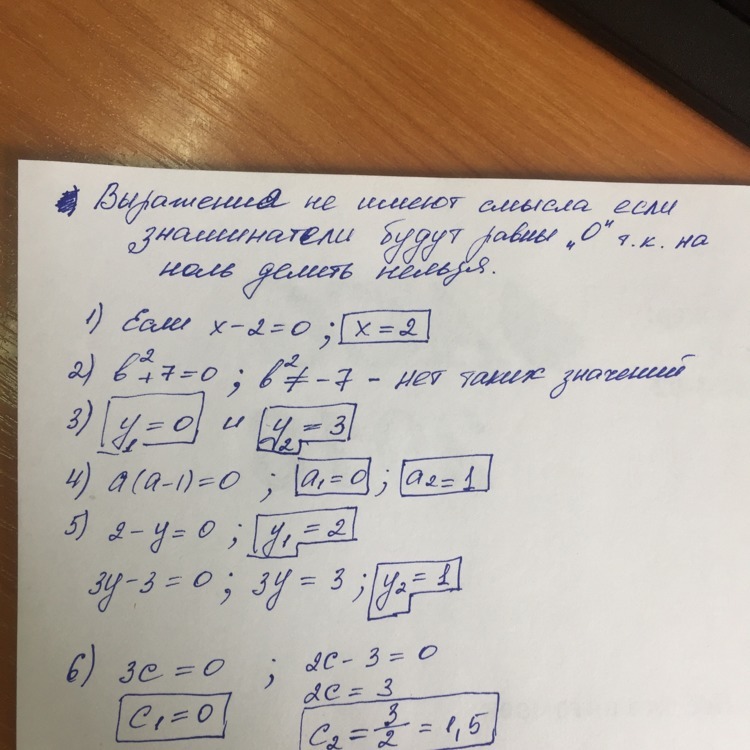 Выражения не имеют смысла если
знаминатели будут равны „0" т.к. на
ноль делить нельзя.
1) Если x-2=0 ; x=2
2) b²+7=0 ; b²≠-7 - нет таких значений
3) y₁=0 и y₂=3
4) a(a-1)=0 ; a₁=0 ; a₂=1
5) 2-y=0 ; y₁=2
3y-3=0 ; 3y=3 ; y₂=1
6) 3c=0 ; 2c-3=0
2c=3
c₁=0 c₂=3/2=1,5